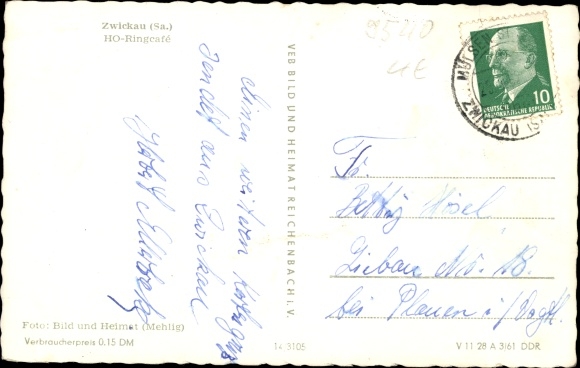 Zwickau (Sa.)
HO-Ringcafé
9540
VEB BILD UND HEIMAT REICHENBACH i. V.
MÜLSEN
ZWICKAU (S
DEUTSCHE
DEMOKRATISCHE REPUBLIK
10
Einen weiteren Kartengruß
sendet aus Zwickau
Fr.
Betty Hösel
Liebau No. 13.
bei Plauen i/Vogtl.
Foto: Bild und Heimat (Mehlig)
Verbraucherpreis 0.15 DM
14 3105
V 11 28 A 3/61 DDR